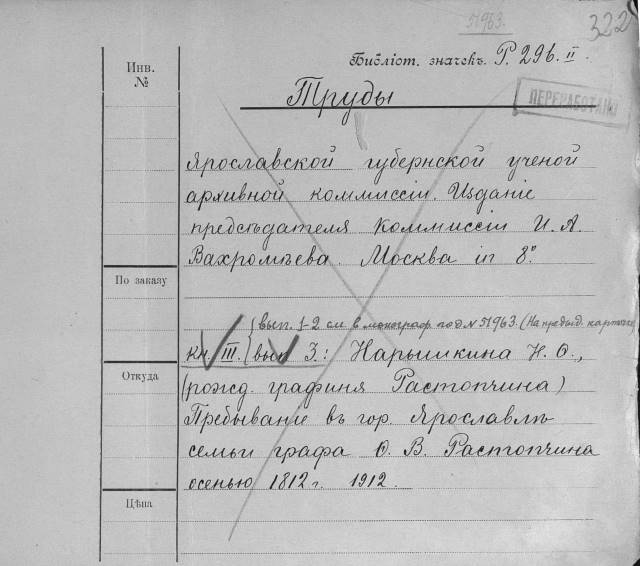 51963.
322
Библіот. значекъ. Р. 29б. II.
Инв. №
Труды
ПЕРЕРАБОТАН
Ярославской губернской ученой
архивной коммиссіи. Изданіе
предсѣдателя Коммиссіи И. А.
Вахромѣева. Москва in 8º
По заказу
вып. 1-2 см в монограф. под № 51963. (На предыд. карточке)
кн. III. вып 3.: Нарышкина Н. Ѳ.,
Откуда
(рожд. графиня Растопчина)
Пребываніе въ гор. Ярославлѣ
семьи графа Ѳ. В. Растопчина
осенью 1812 г. 1912.
Цѣна